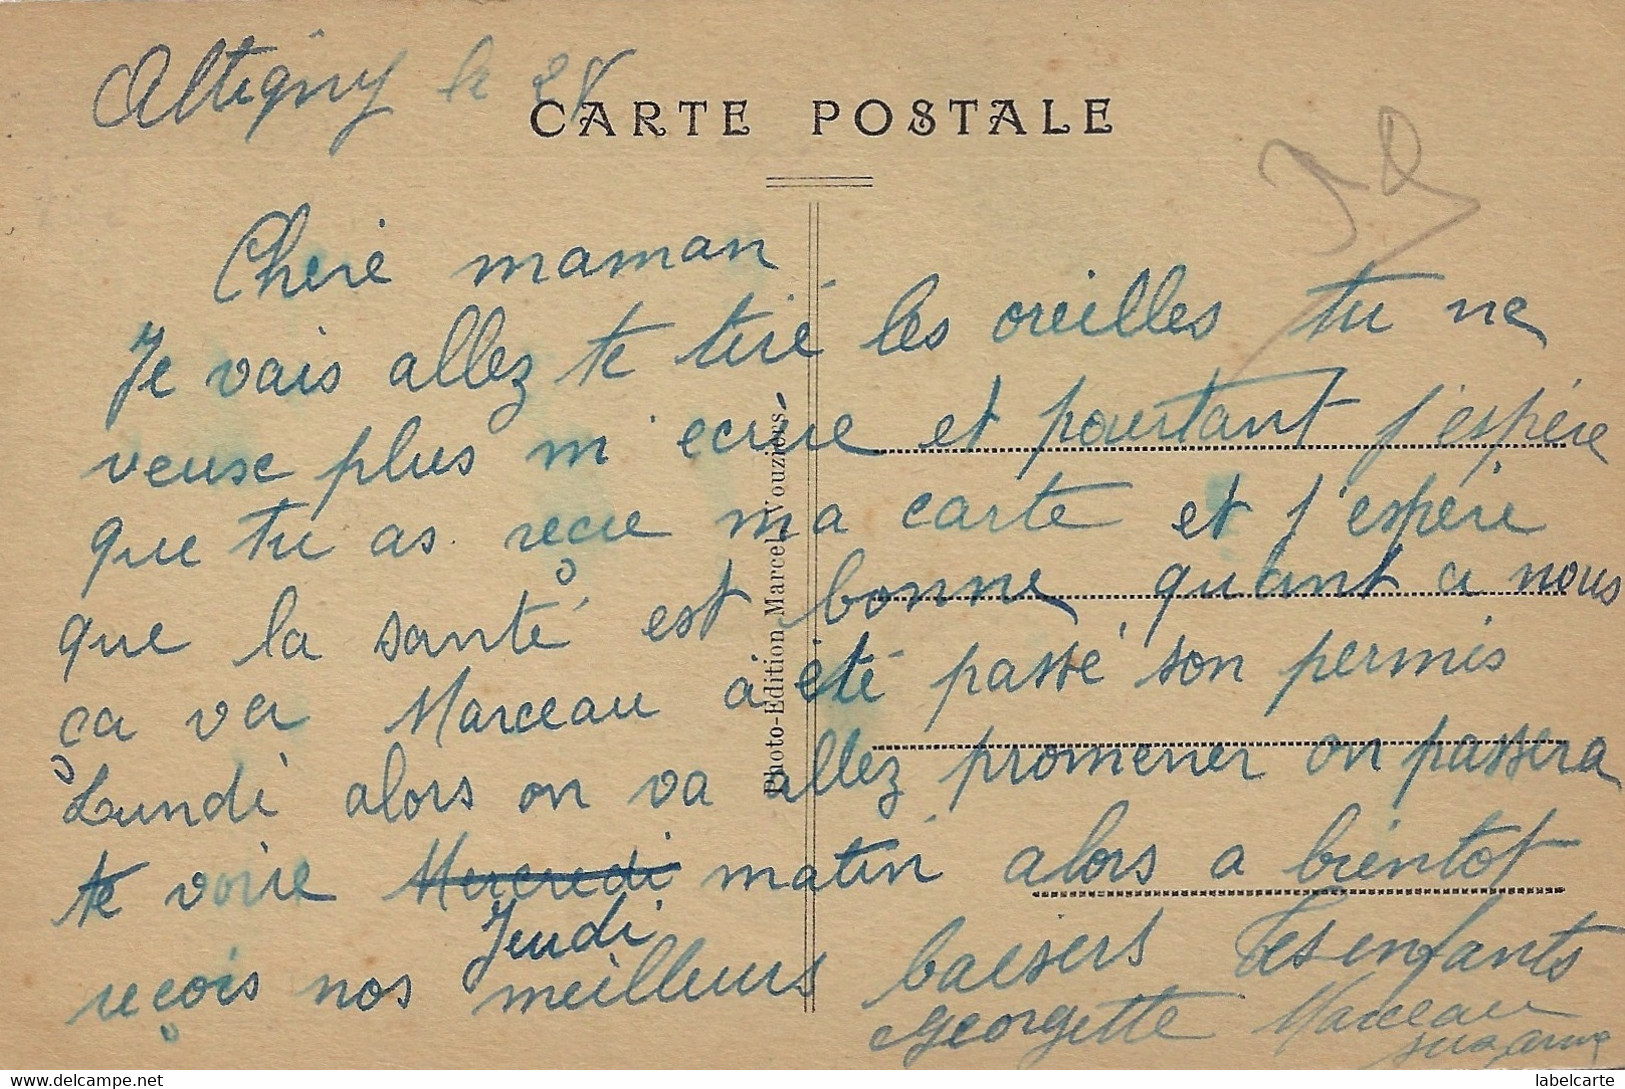 Attigny le 28
CARTE POSTALE
Chere maman
Je vais allez te tiré les oreilles tu ne
veuse plus m'ecrire et pourtant j'espére
que tu as reçue ma carte et j'espére
que la santé est bonne quant a nous
ça va Marceau à été passé son permis
Lundi alors on va allez promener on passera
te voire ~~Mercredi~~ matin alors a bientot
Jeudi
reçois nos meilleurs baisers Tes enfants
Georgette Marceau
Suzanne
Photo-Edition Marcel, Vouziers
labelcarte